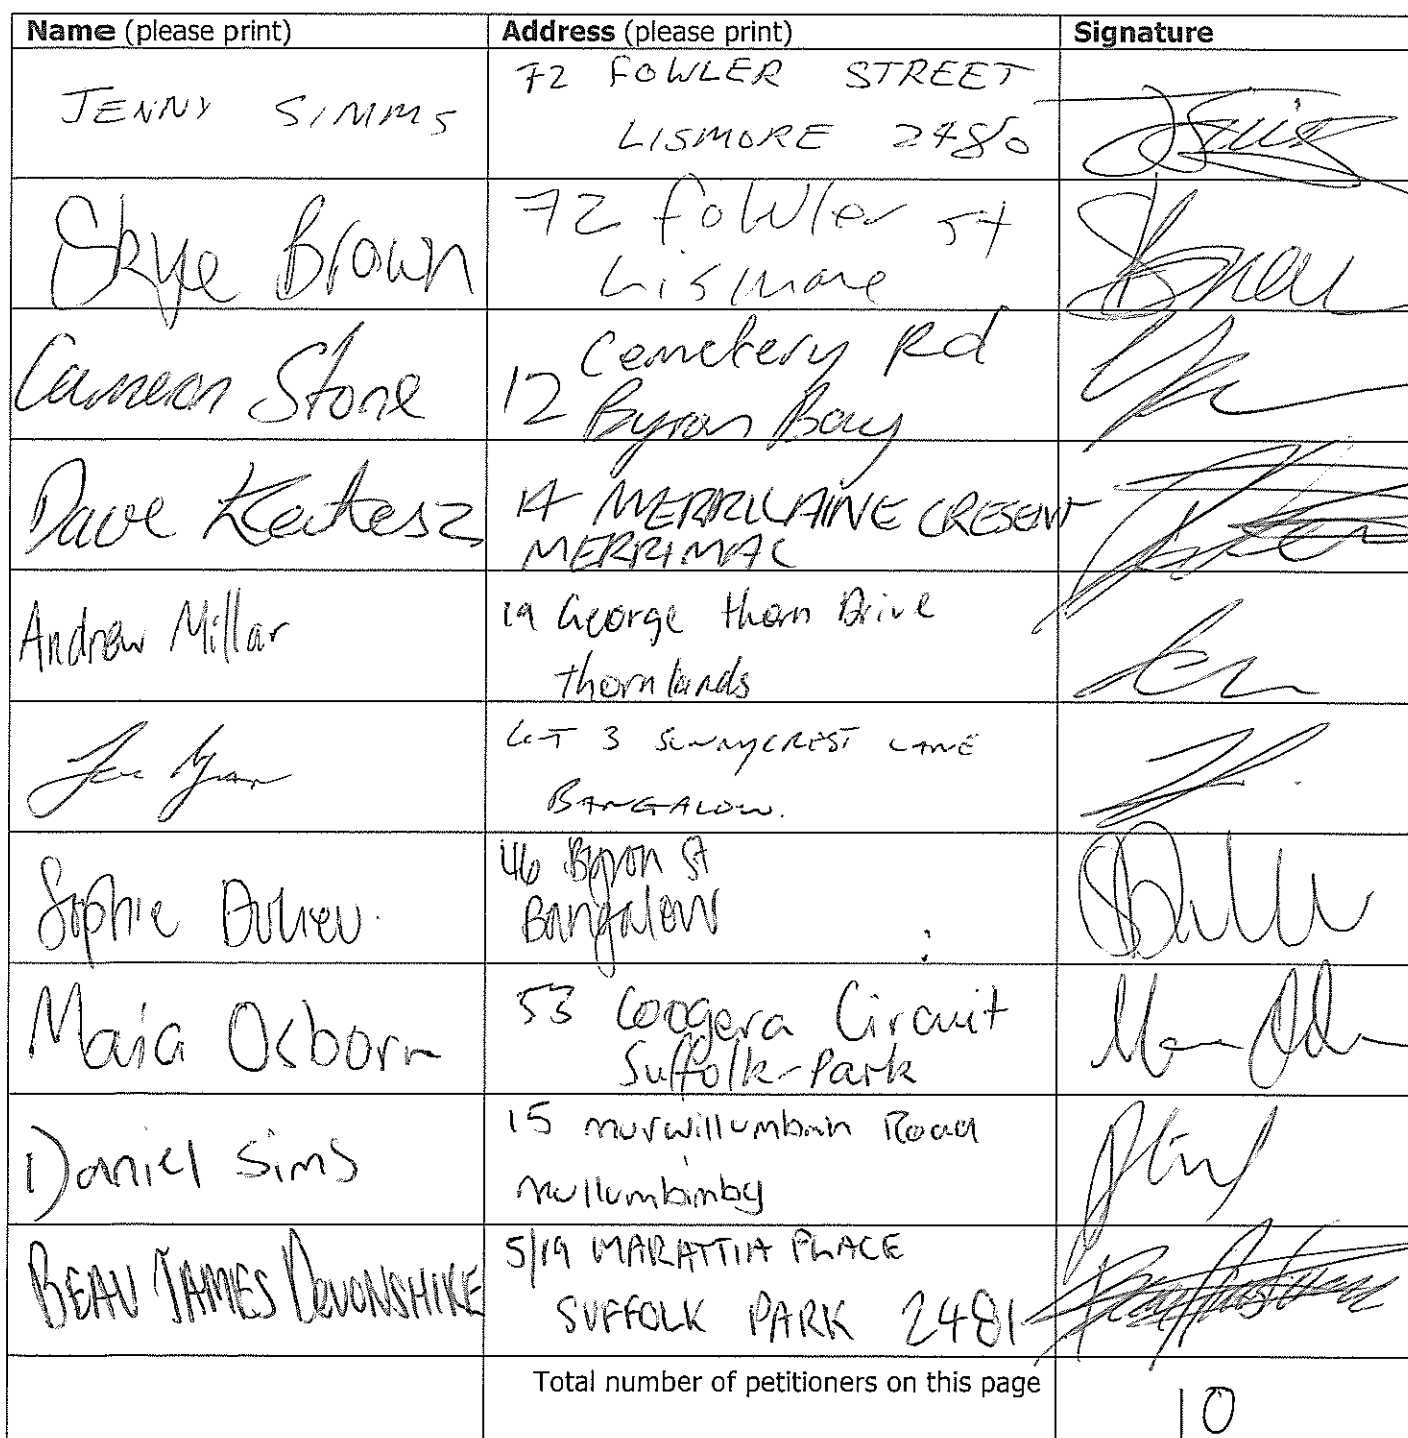 Name (please print) Address (please print) Signature
JENNY SIMMS
72 FOWLER STREET
LISMORE 2480
Skye Brown
72 fowler st
Lismore
Cameron Stone
12 Cemetery Rd
Byron Bay
Dave
14 MERRILAINE CRESENT
MERRIMAC
Andrew Millar
19 George thorn Drive
thornlands
LOT 3 SUNNYCREST LANE
BANGALOW.
Sophie
46 Byron St
Bangalow
Maia Osborn
53 Coogera Circuit
Suffolk-Park
Daniel Sims
15 murwillumbah Road
mullumbimby
BEAU JAMES DEVONSHIRE
5/19 MARATTIA PLACE
SUFFOLK PARK 2481
Total number of petitioners on this page
10